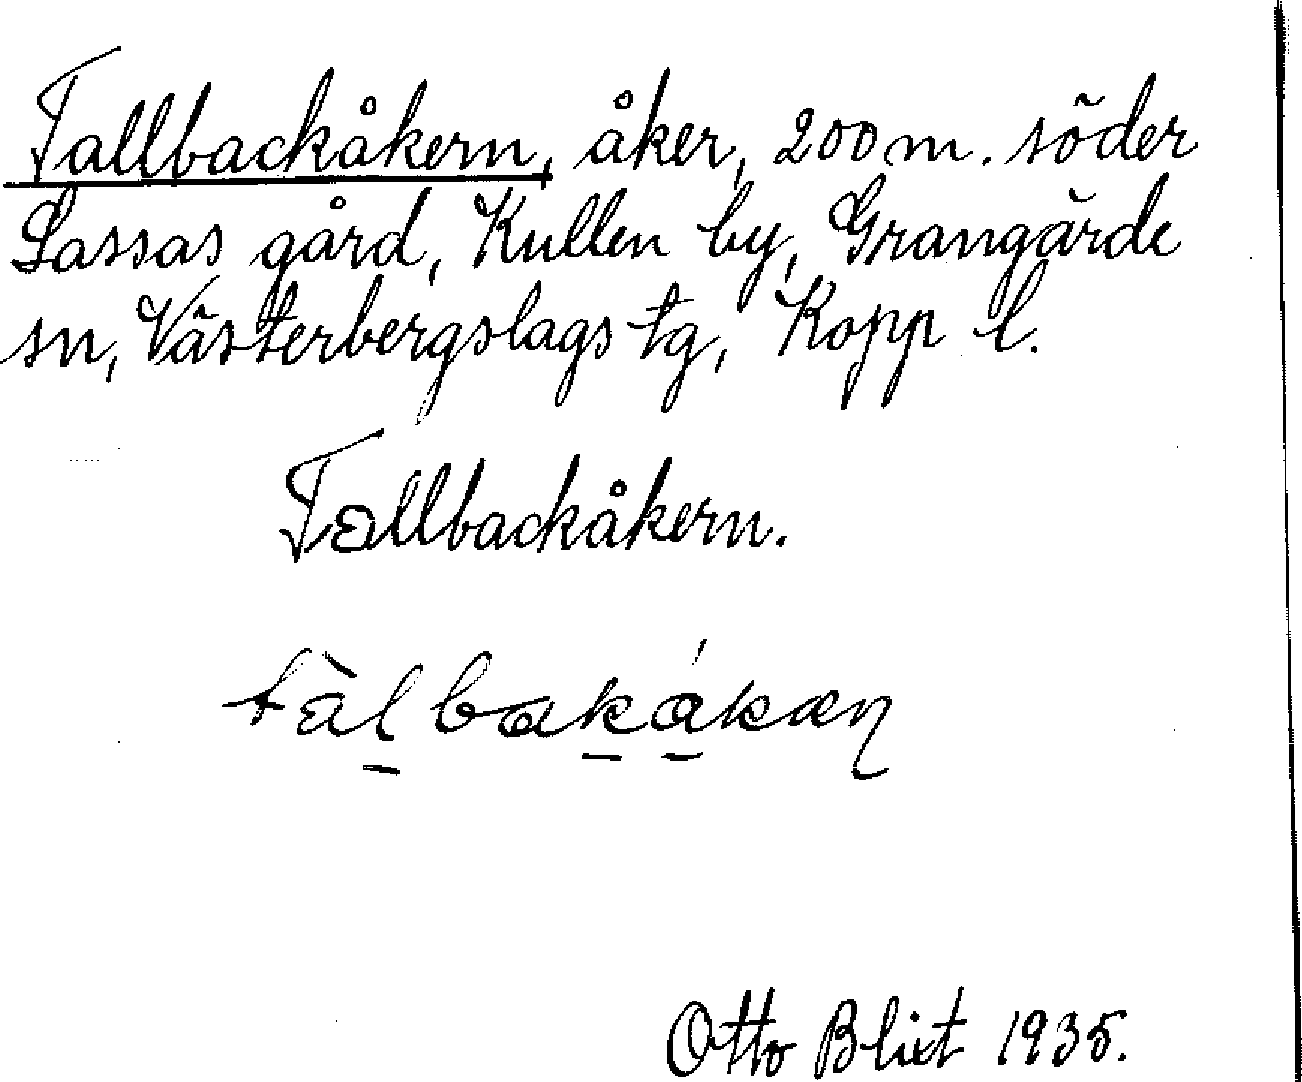 Tallbackåkern, åker, 200 m. söder
Lassas gård, Kullen by, Grangärde
sn, Västerbergslags tg, Kopp l.
Tallbackåkern.
tàl̠bak̠ǻ̠kæɳ
Otto Blixt 1935.